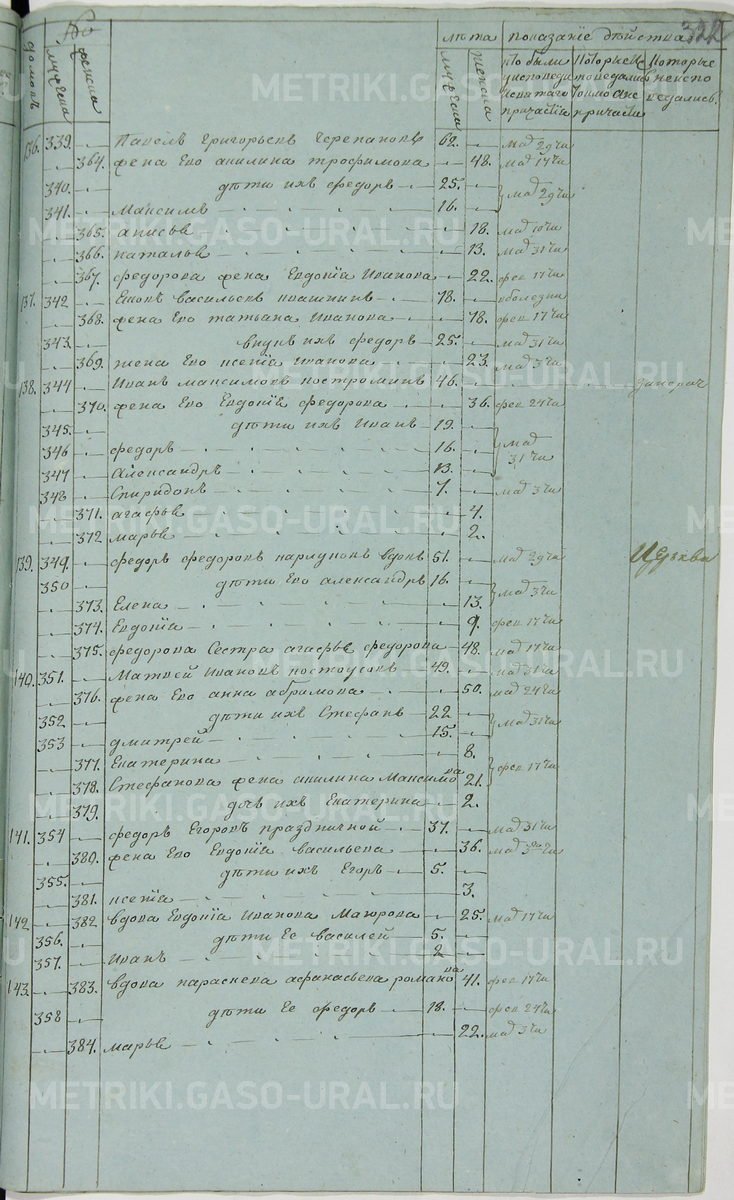 322
№
лѣта показанїе дѣйства
домовъ мужеска женска мужеска женска кто были у исповеди и святаго причастїя которые исповедались токмо а не причасти которые неиспо ведались
136. 339. Павелъ Григорьевъ Черепановъ 62. мар 29 чи
364. жена Его акилина трофимова 48. мар 17 чи
340. дѣти ихъ федоръ 25. мар 29 чи
341. Максимъ 16.
365. анисья 18. мар 10 чи
366. наталья 13. мар 31 чи
367. федорова жена Евдокїя Иванова 22. фев 17 чи
137. 342 васильевъ 78. оболезни
368. жена Его татьяна Иванова 78. фев 17 чи
343. внукъ ихъ федоръ 25. мар 31 чи
369. жена Его ксенїя Иванова 23. мар 3 чи
138. 344 Иванъ максимовъ костроминъ 46.
370. жена Его Евдокїя федорова 36. фев 24 чи
345. дѣти ихъ Иванъ 19. мар 31 чи
346 федоръ 16.
347 Александръ 13.
348 Спиридонъ 7. мар 3 чи
371. агафья 4.
372 марья 2.
139. 349. федоръ федоровъ вдовъ 51. мар 29 чи
350 дѣти Его александръ 16. мар 3 чи
373. Елена 13.
374. Евдокїя 9. фев 17 чи
375. федорова Сестра агафья федорова 48. мар 17 чи
140. 351. Матвей Ивановъ 49. мар 31 чи
376. жена Его анна абрамова 50. мар 24 чи
352. дѣти ихъ Стефанъ 22 мар 31 чи
353 дмитрей 15.
377. Екатерина 8. фев 17 чи
378. Стефанова жена акилина Максимова 21.
379. дочь ихъ Екатерина 2.
141. 354 федоръ Егоровъ праздничной 37. мар 31 чи
380. жена Его Евдокїя васильева 36. мар 3 чи
355. дѣти ихъ Егоръ 5.
381. ксенїя 3.
142. 382 вдова Евдокїя Иванова Мазурова 25. мар 17 чи
356. дѣти Ее василей 5.
357. Иванъ 2
143. 383. вдова параскева афанасьева романова 41. фев 17 чи
358 дѣти Ее федоръ 18. фев 24 чи
384. марья 22. мар 3 чи
METRIKI.GASO-URAL.RU